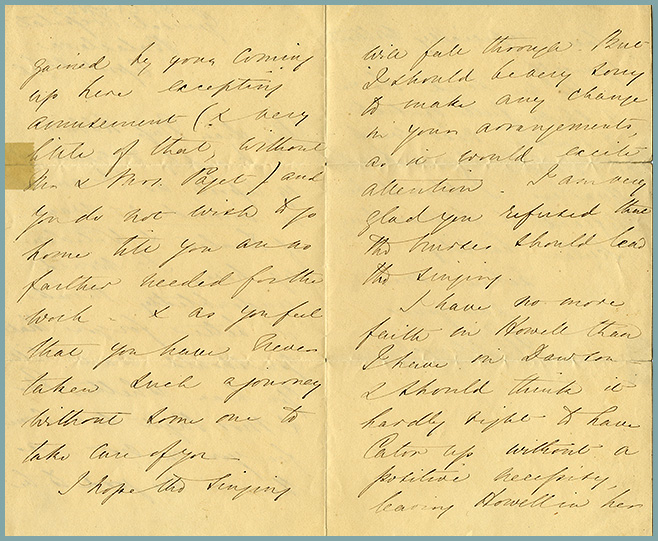 gained by your coming
up here excepting
amusement (& very
little of that, without
Mr. & Mrs. Paget) and
you do not wish to go
home till you are no
farther needed for the
work – & as you feel
that you have never
taken such a journey
without some one to
take care of you –
I hope the singing
will fall through. But
I should be very sorry
to make any change
in your arrangements,
as it would excite
attention. I am very
glad you refused that
the nurses should lead
the singing.
I have no more
faith in Howell than
I have in Dawson –
& should think it
hardly right to have
Cator up without a
positive necessity,
leaving Howell in her